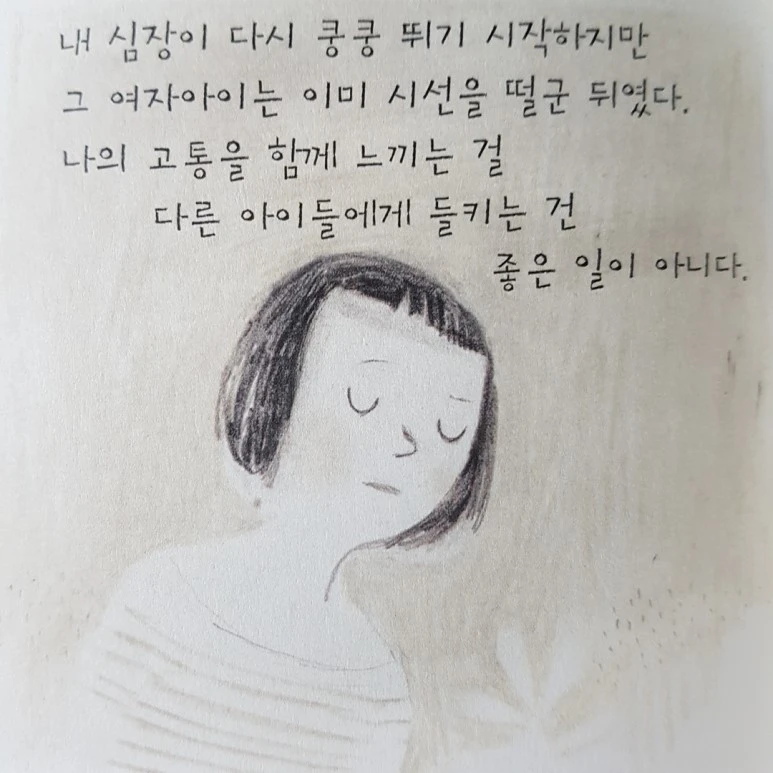 내 심장이 다시 쿵쿵 뛰기 시작하지만
그 여자아이는 이미 시선을 떨군 뒤였다.
나의 고통을 함께 느끼는 걸
다른 아이들에게 들키는 건
좋은 일이 아니다.